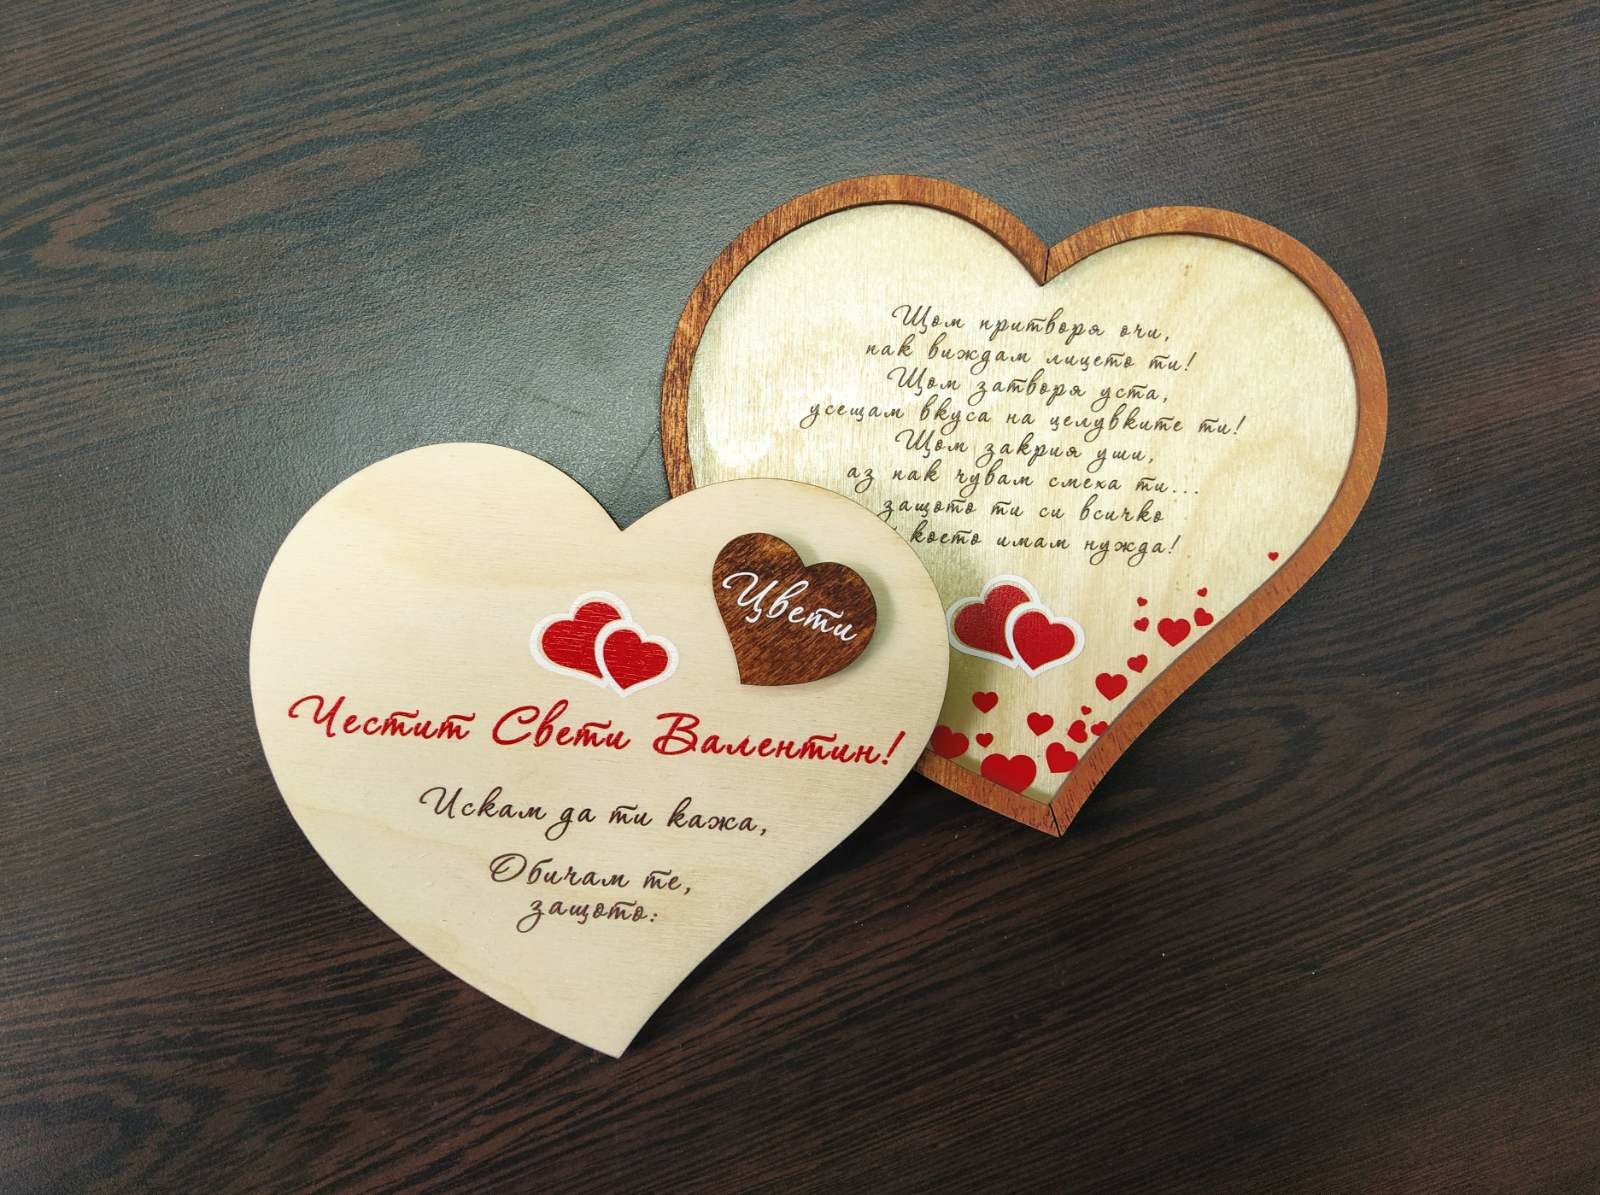 Цвети
Честит Свети Валентин!
Искам да ти кажа,
Обичам те,
защото:
Щом притворя очи,
пак виждам лицето ти!
Щом затворя уста,
усещам вкуса на целувките ти!
Щом закрия уши,
аз пак чувам смеха ти...
защото ти си всичко
което имам нужда!